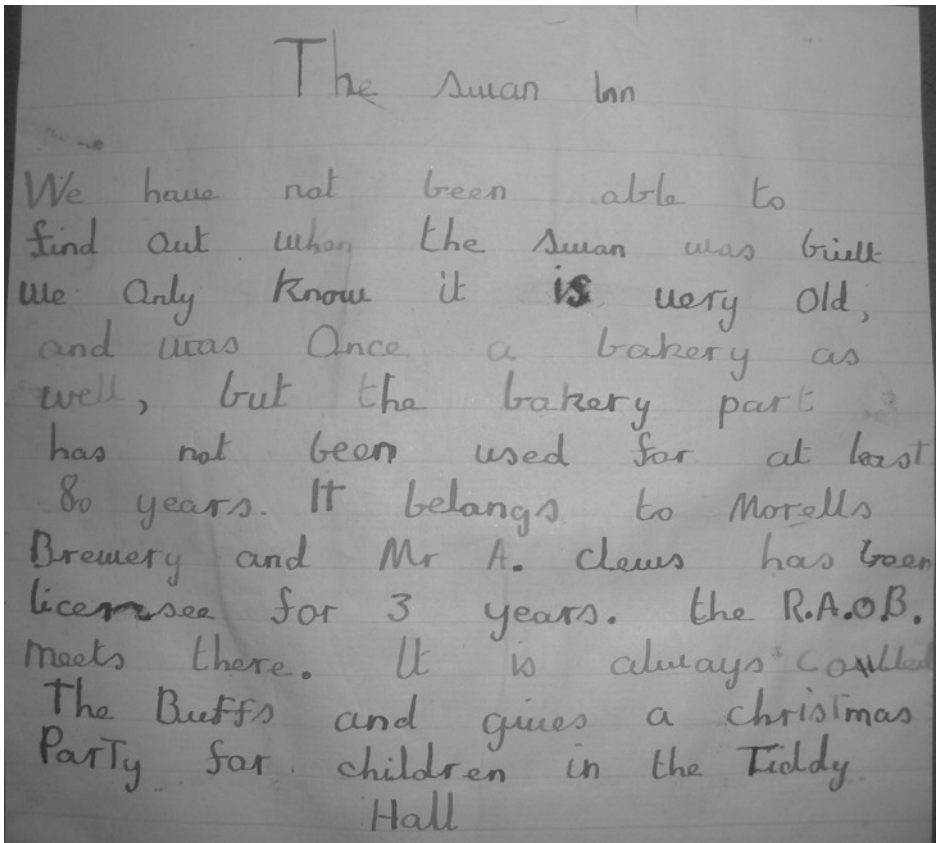 The Swan Inn
We have not been able to
find out when the Swan was built
we Only Know it is very old,
and was Once a bakery as
well, but the bakery part
has not been used for at least
80 years. It belongs to Morells
Brewery and Mr A. Clews has been
licensee for 3 years. the R.A.O.B.
meets there. It is always called
The Buffs and gives a christmas
ParTy for children in the Tiddy
Hall